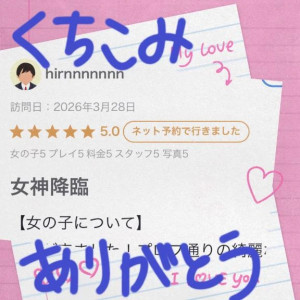 くちこみ
My Love
hirnnnnnnn
訪問日：2026年3月28日
★★★★★ 5.0 ネット予約で行きました
女の子5 プレイ5 料金5 スタッフ5 写真5
女神降臨
【女の子について】
プロフ通りの綺麗
ありがとう
I LOVE you